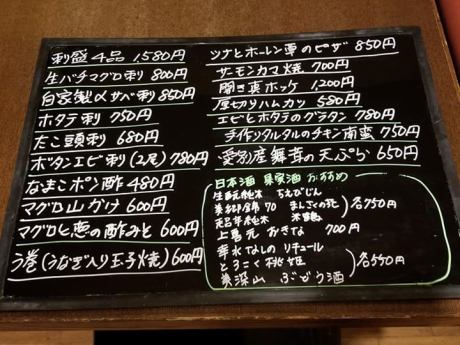 刺盛4品 1,580円
生バチマグロ刺 800円
自家製〆サバ刺 850円
ホタテ刺 750円
たこ頭刺 680円
ボタンエビ刺(2尾) 780円
なまこポン酢 480円
マグロ山かけ 600円
マグロと葱の酢みそ 600円
う巻(うなぎ入り玉子焼) 600円
ツナとホーレン草のピザ 850円
サーモンカマ焼 700円
開き真ホッケ 1,200円
厚切りハムカツ 580円
エビとホタテのグラタン 780円
手作りタルタルのチキン南蛮 750円
愛別産舞茸の天ぷら 650円
日本酒 果実酒 おすすめ
生酛純米 ちえびじん
美郷錦70 まんさくの花
純米
各750円
上喜元 おきな 700円
幸水なしのリキュール
とろこく桃姫
美深山 ぶどう酒
各550円